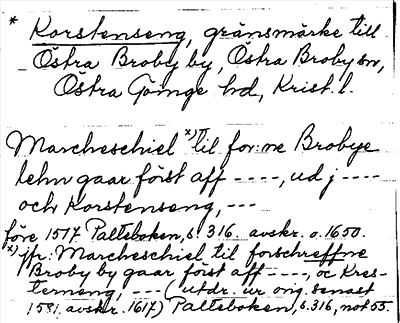 * Korstenseng, gränsmärke till
Östra Broby by, Östra Broby sn,
Östra Göinge hd, Krist. l.
Marcheschiel x) til for:ne Brobye
lehn gaar först aff ----, ud j ----
och Korstenseng, ---
före 1517 Palteboken, s. 316. avskr. o. 1650.
x) jfr: Marcheschiel til forschreffne
Broby by gaar först aff ----, oc Kres-
terneng, --- (utdr. ur orig. senast
1581, avskr. 1617) Palteboken, s. 316, not 55.